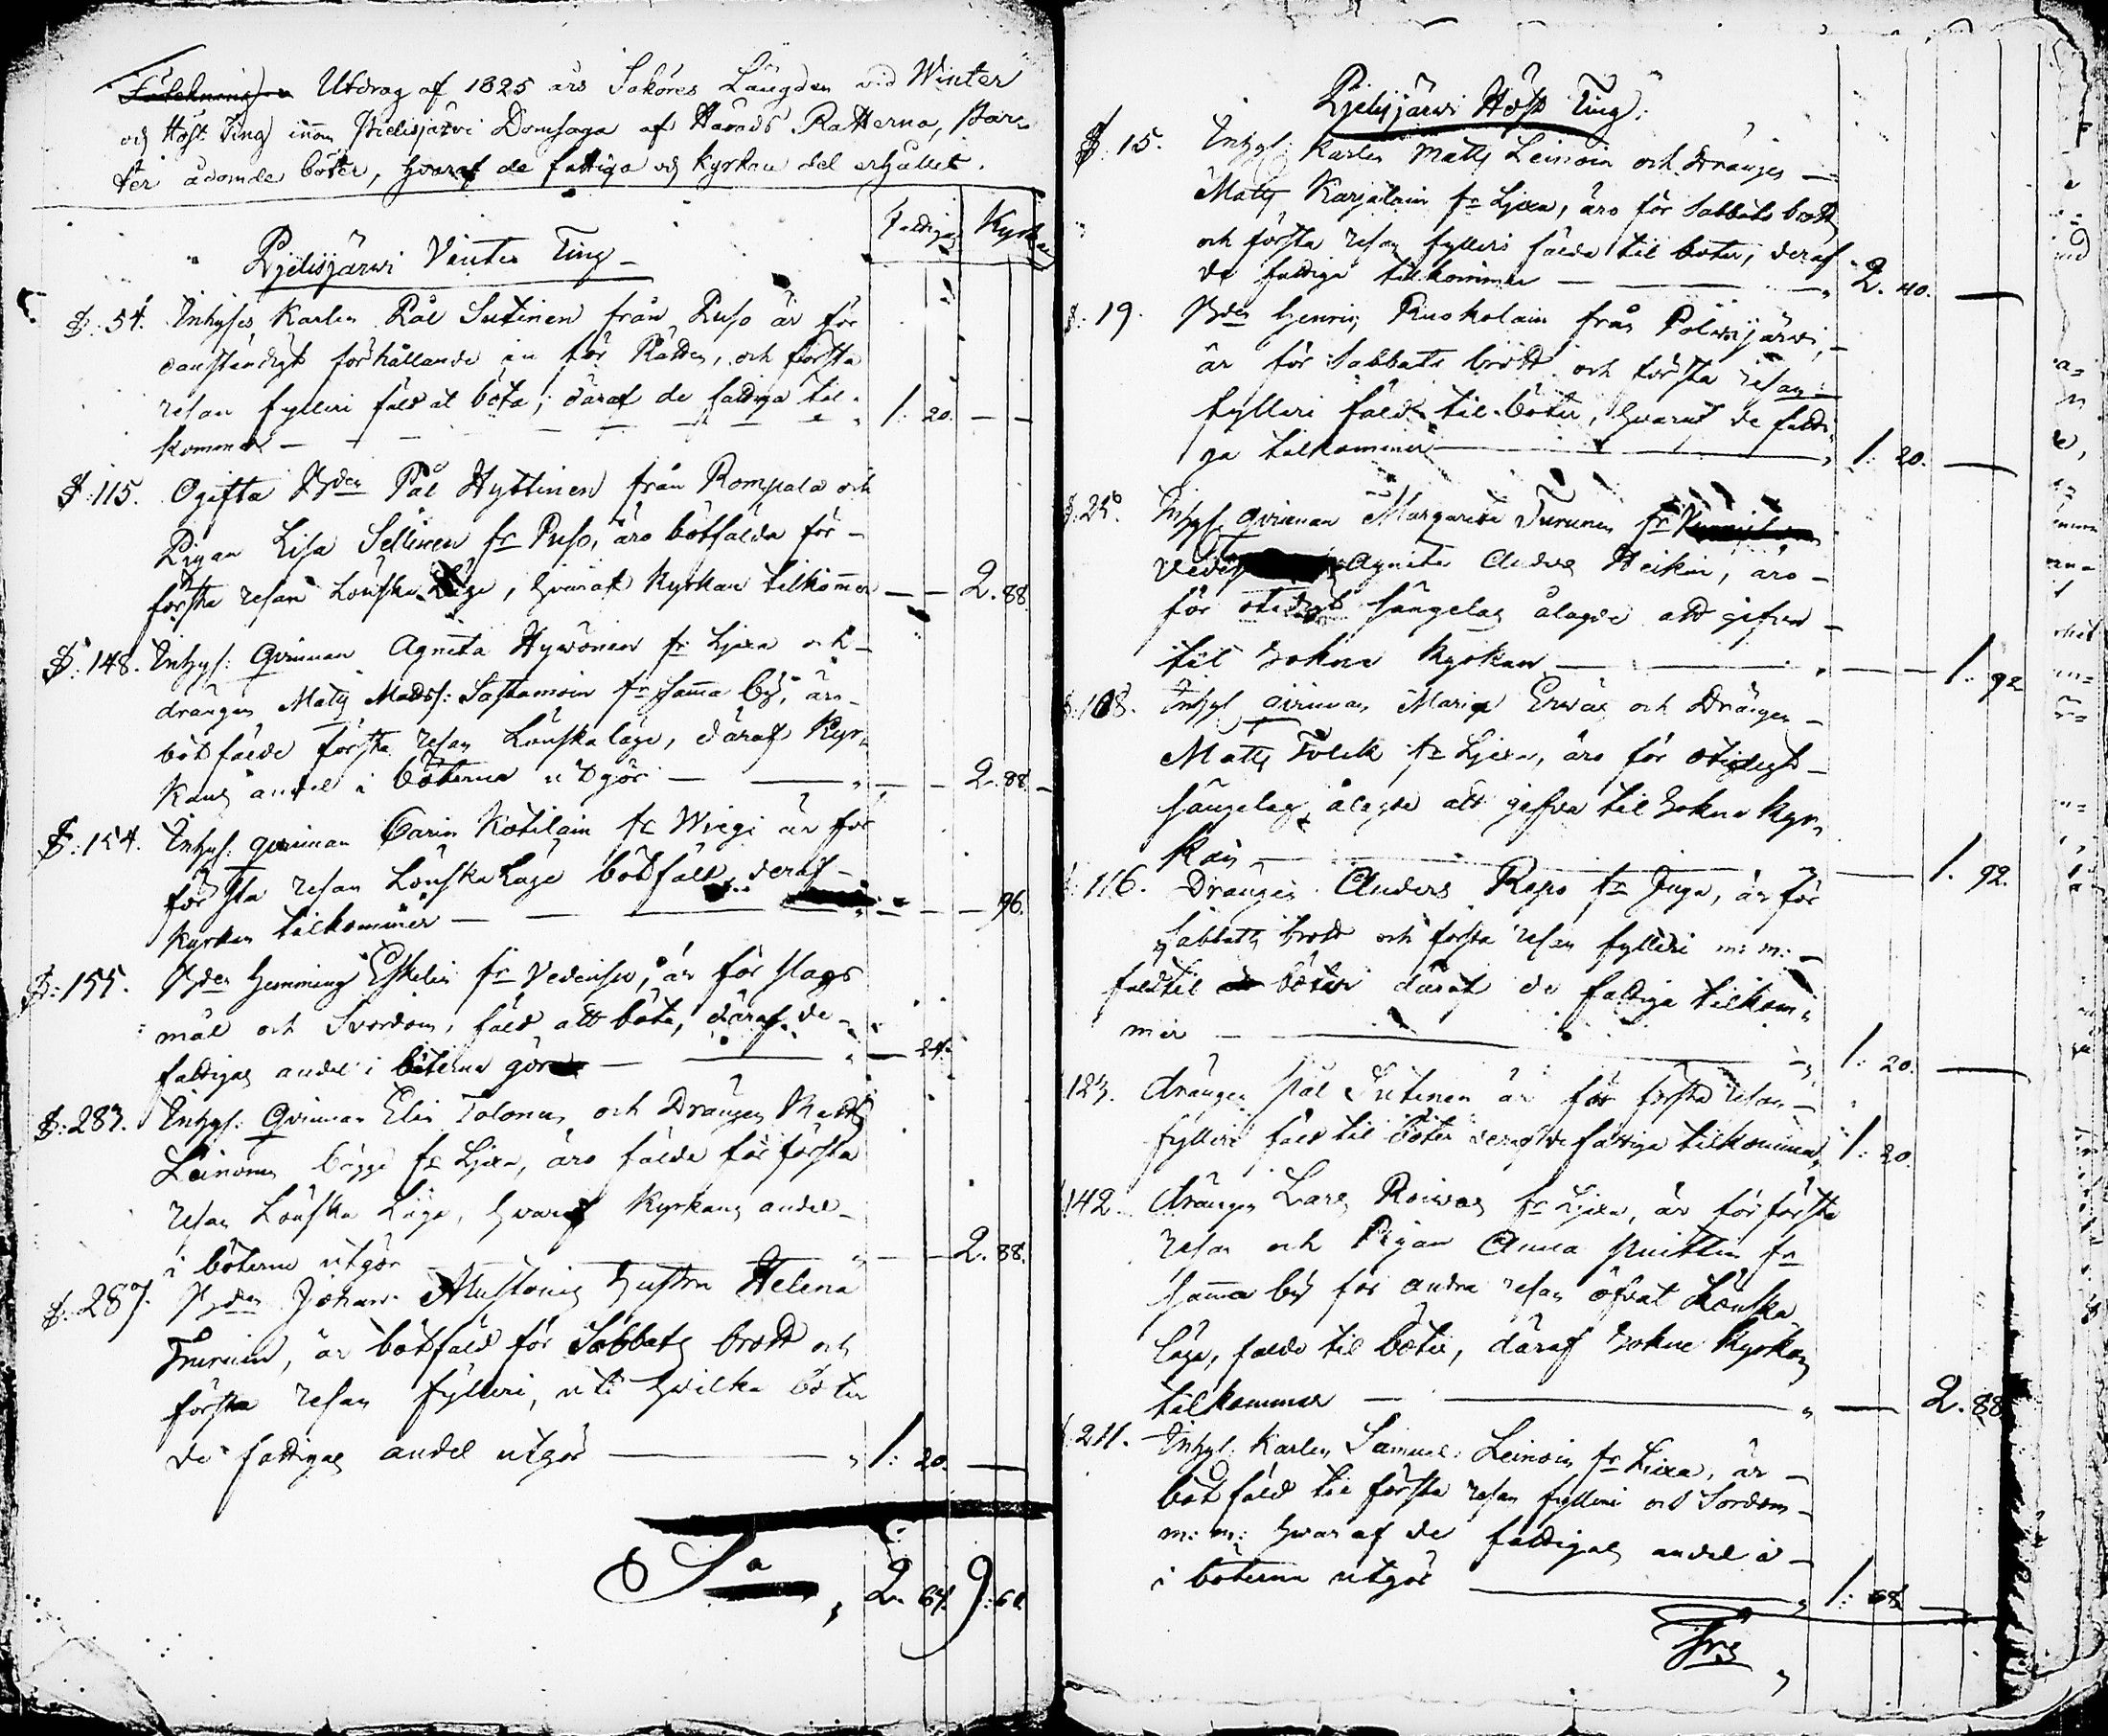 Utdrag af 1825 års Saköres Längden vid Winter
och Höst Ting innom Pielisjärvi Domsaga af Härads Rätterna, Par-
ter ådömde böter, hvaraf de fattiga och Kyrkan del erhållet.
Fattiga Kyrkan
Pjelisjärwi Vinter Ting
§. 54. Inhyses Karlen Pål Sutinen från Puso är för
oanständigt förhållande in för Rätten, och första
resan fylleri fäld at böta; däraf de fattiga til-
kommer 1: 20.
§: 115. Ogifta Bden Pål Hyttinen från Rompala och
Pigan Lisa Sellinen fr Puso, äro bötfälda för
första resan Lönska Läge, hvaraf Kyrkan tilkommer 2. 88.
§: 148. Inhys: Qvinnan Agneta Hyvönen fr Lixa och
drängen Matts Madss: Sastamoin fr samma by, äro
bötfälde första resan Lönskaläge, däraf Kyr-
kans andel i böterna utgör 2. 88.
§: 154. Inhys: qvinnan Carin Kotilain fr Wiegi är för
första resan Lönska Läge bötfäld, deraf
Kyrkan tilkommer 96.
§: 155. Bden Hemming Eskelin fr Vedensu, är för slags
mål och Svordom, fäld att böta, däraf de
fattigas andel i böterna gör 24.
§: 283. Inhys: Qvinnan Elin Tolonen och Drängen Matts
Leinonen bägge fr Lixa, äro fälde för första
resan Lönska Läge, hvaraf Kyrkans andel
i böterna utgör 2. 88.
§. 287. Bden Johan Mustonens hustru Helena
Turunen, är bötfäld för Sabbats brott och
första resan fylleri, uti hvilka böter
de fattigas andel utgör 1: 20.
Sa 2. 64. 9: 60.
Pjelisjärwi Höst Ting:
§. 15. Inhys: Karlen Matts Leinoin och Drängen
Matts Karjalain fr Lixa, äro för Sabbats brott
och första resan fylleri fälde til böter, deraf
de fattiga tilkommer 2. 40.
§: 19. Bden Henric Ruokolain från Polvijärvi,
är för Sabbats brott och första resan
fylleri fäld til böter, hvaraf de fatti-
ga tilkommer 1: 20.
Inhyse qvinnan Margareta Turunen fr
Agneta Heikin, äro
för otidigt sängelag ålagde att gifva
til Sokne Kyrkan 1. 92
§. 108. Inhys qvinnan Maria Ervas och Drängen
Matts Tolck fr Lixa, äro för otidigt
sängelag, ålagde att gifva til Sokne Kyr-
kan 1. 92.
116. Drängen Anders Repo fr Juga, är för
Sabbats brott och första resan fylleri m: m:
fäld til böter däraf de fattiga tilkom-
mer 1: 20.
123. drängen Pål Sutinen är för första resan
fylleri fäld til böter deraf de fattiga tilkommer 1: 20.
142. drängen Lars Roivas fr Lixa, är för första
resan och Pigan Anna Puittin fr
samma by för andra resan öfvat Lönska
läge, fälde til böter, däraf Sokne Kyrkan
tilkommer 2. 88
211. Inhys: Karlen Samuel Leinoin fr Lixa, är
bötfäld för första resan fylleri och Sordom
m: m: hvaraf de fattigas andel
i böterna utgör 1: 68.